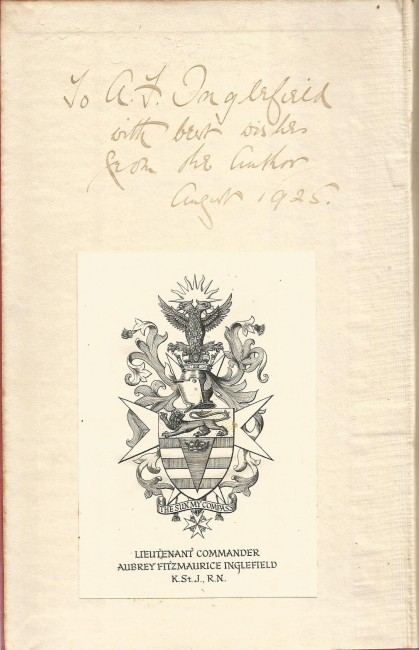 To A. F. Inglefield
with best wishes
from the Author
August 1925.
THE SUN MY COMPASS
LIEUTENANT COMMANDER
AUBREY FITZMAURICE INGLEFIELD
K.St.J., R.N.